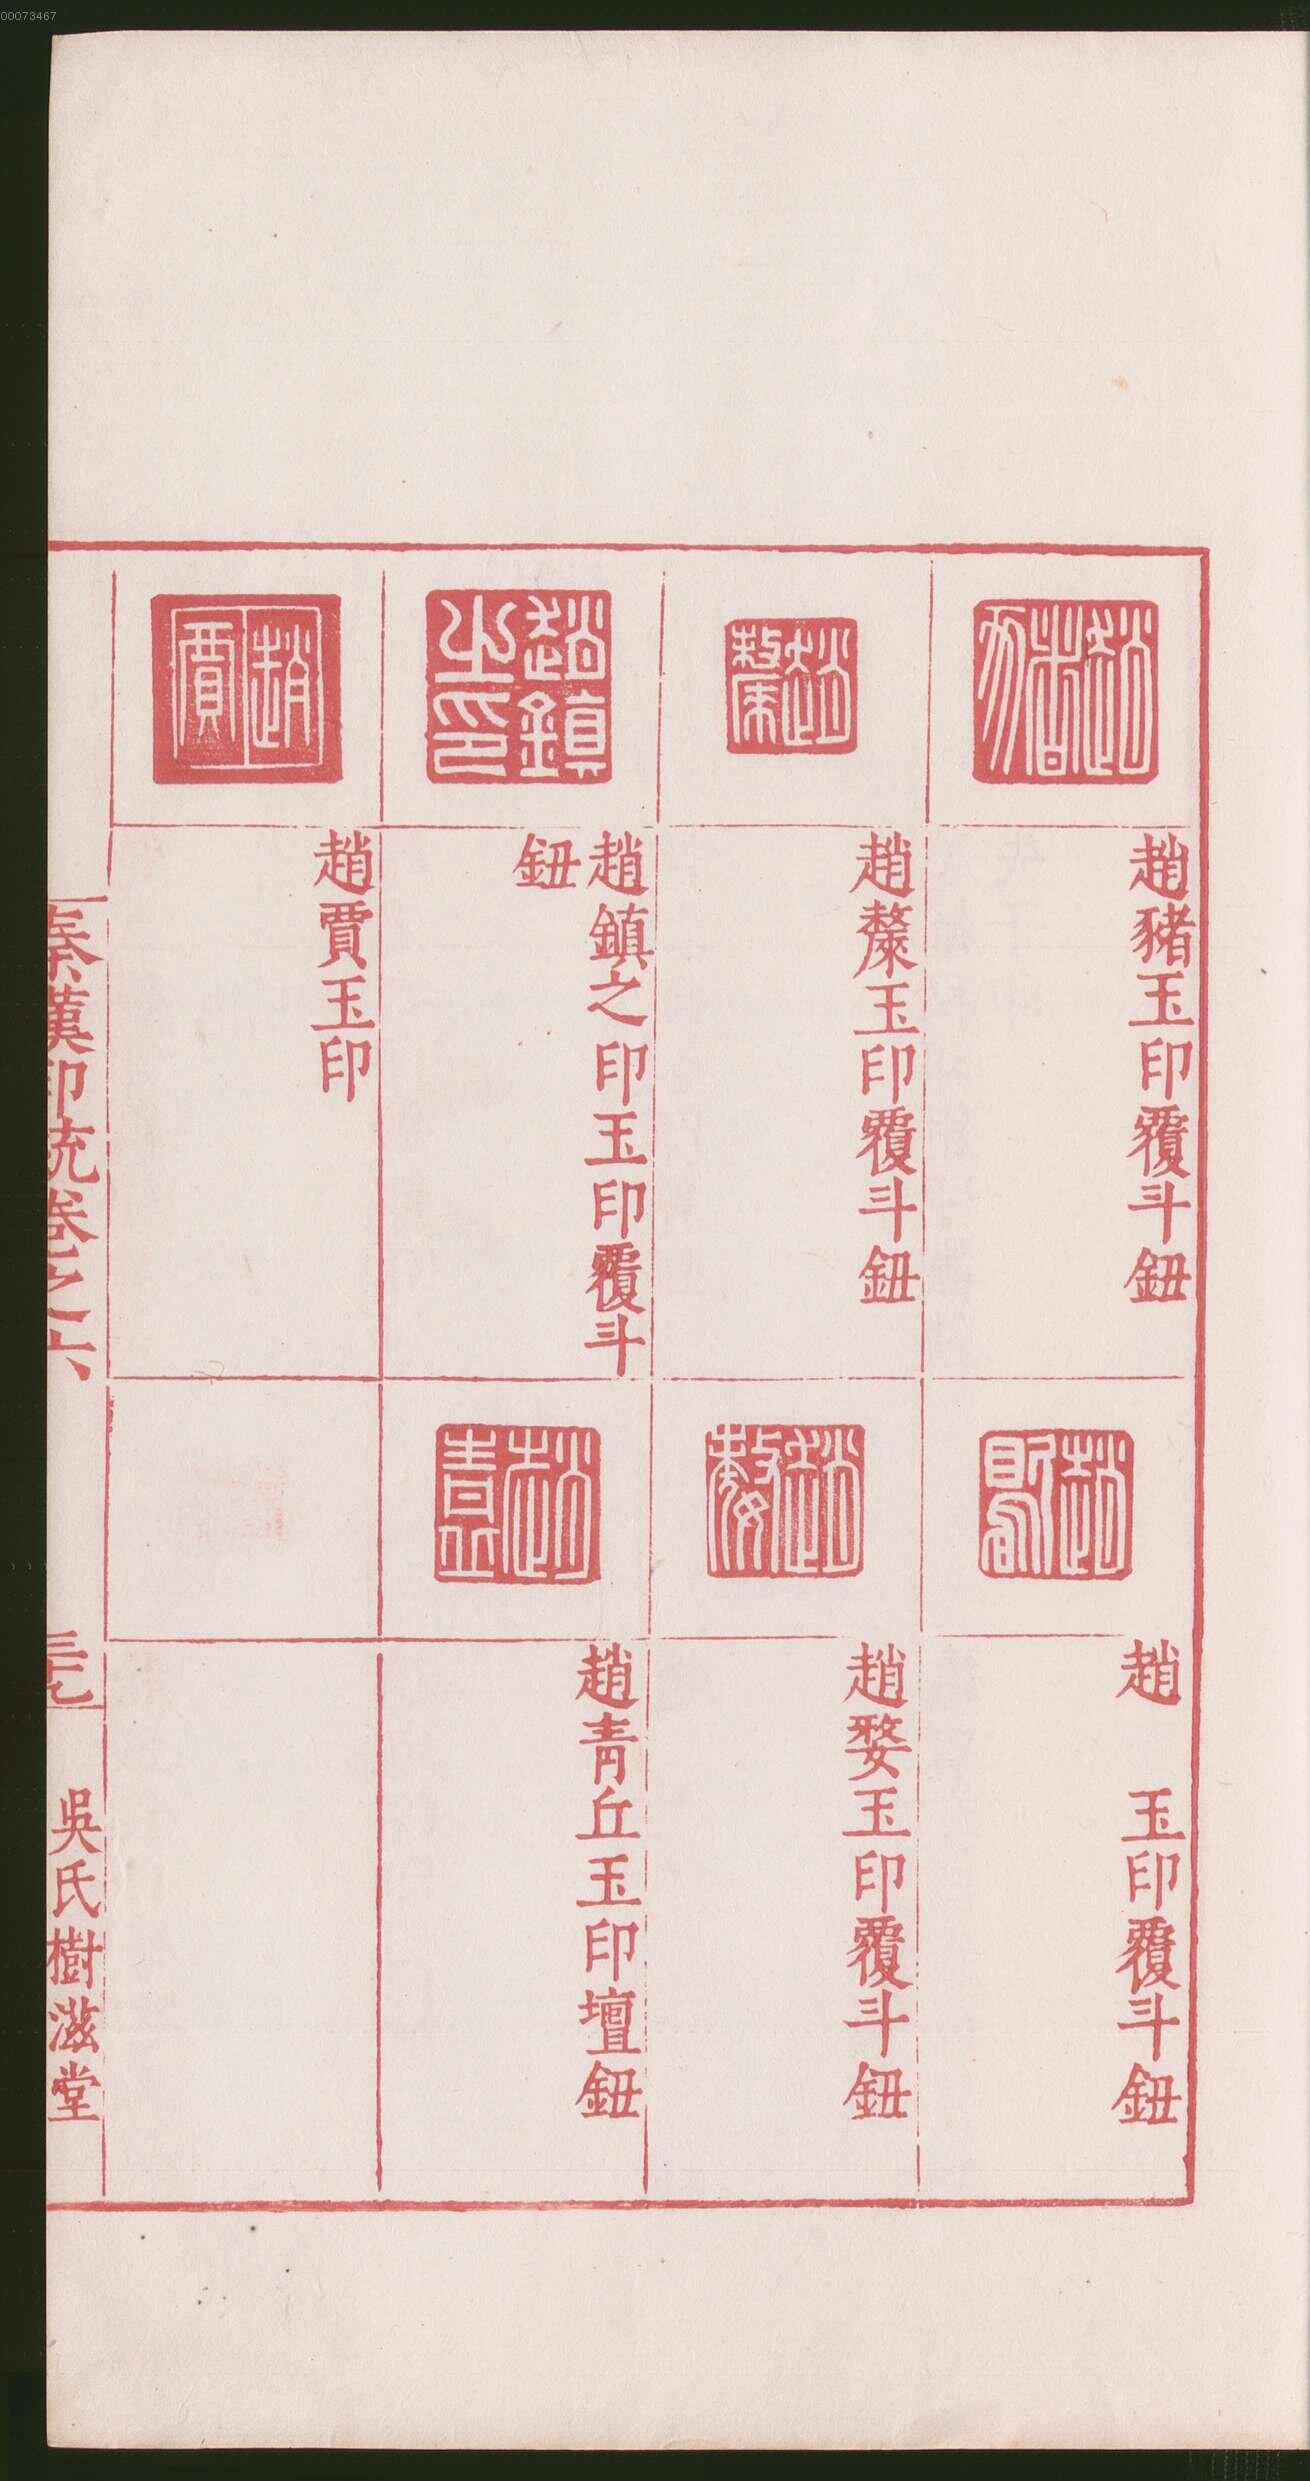 00073467
趙豬
趙豬玉印覆斗鈕
趙
趙　玉印覆斗鈕
趙漦
趙漦玉印覆斗鈕
趙婺
趙婺玉印覆斗鈕
趙鎮之印
趙鎮之印玉印覆斗
鈕
趙青丘
趙青丘玉印壇鈕
趙賈
趙賈玉印
秦漢印統卷之六
三十九
吳氏樹滋堂